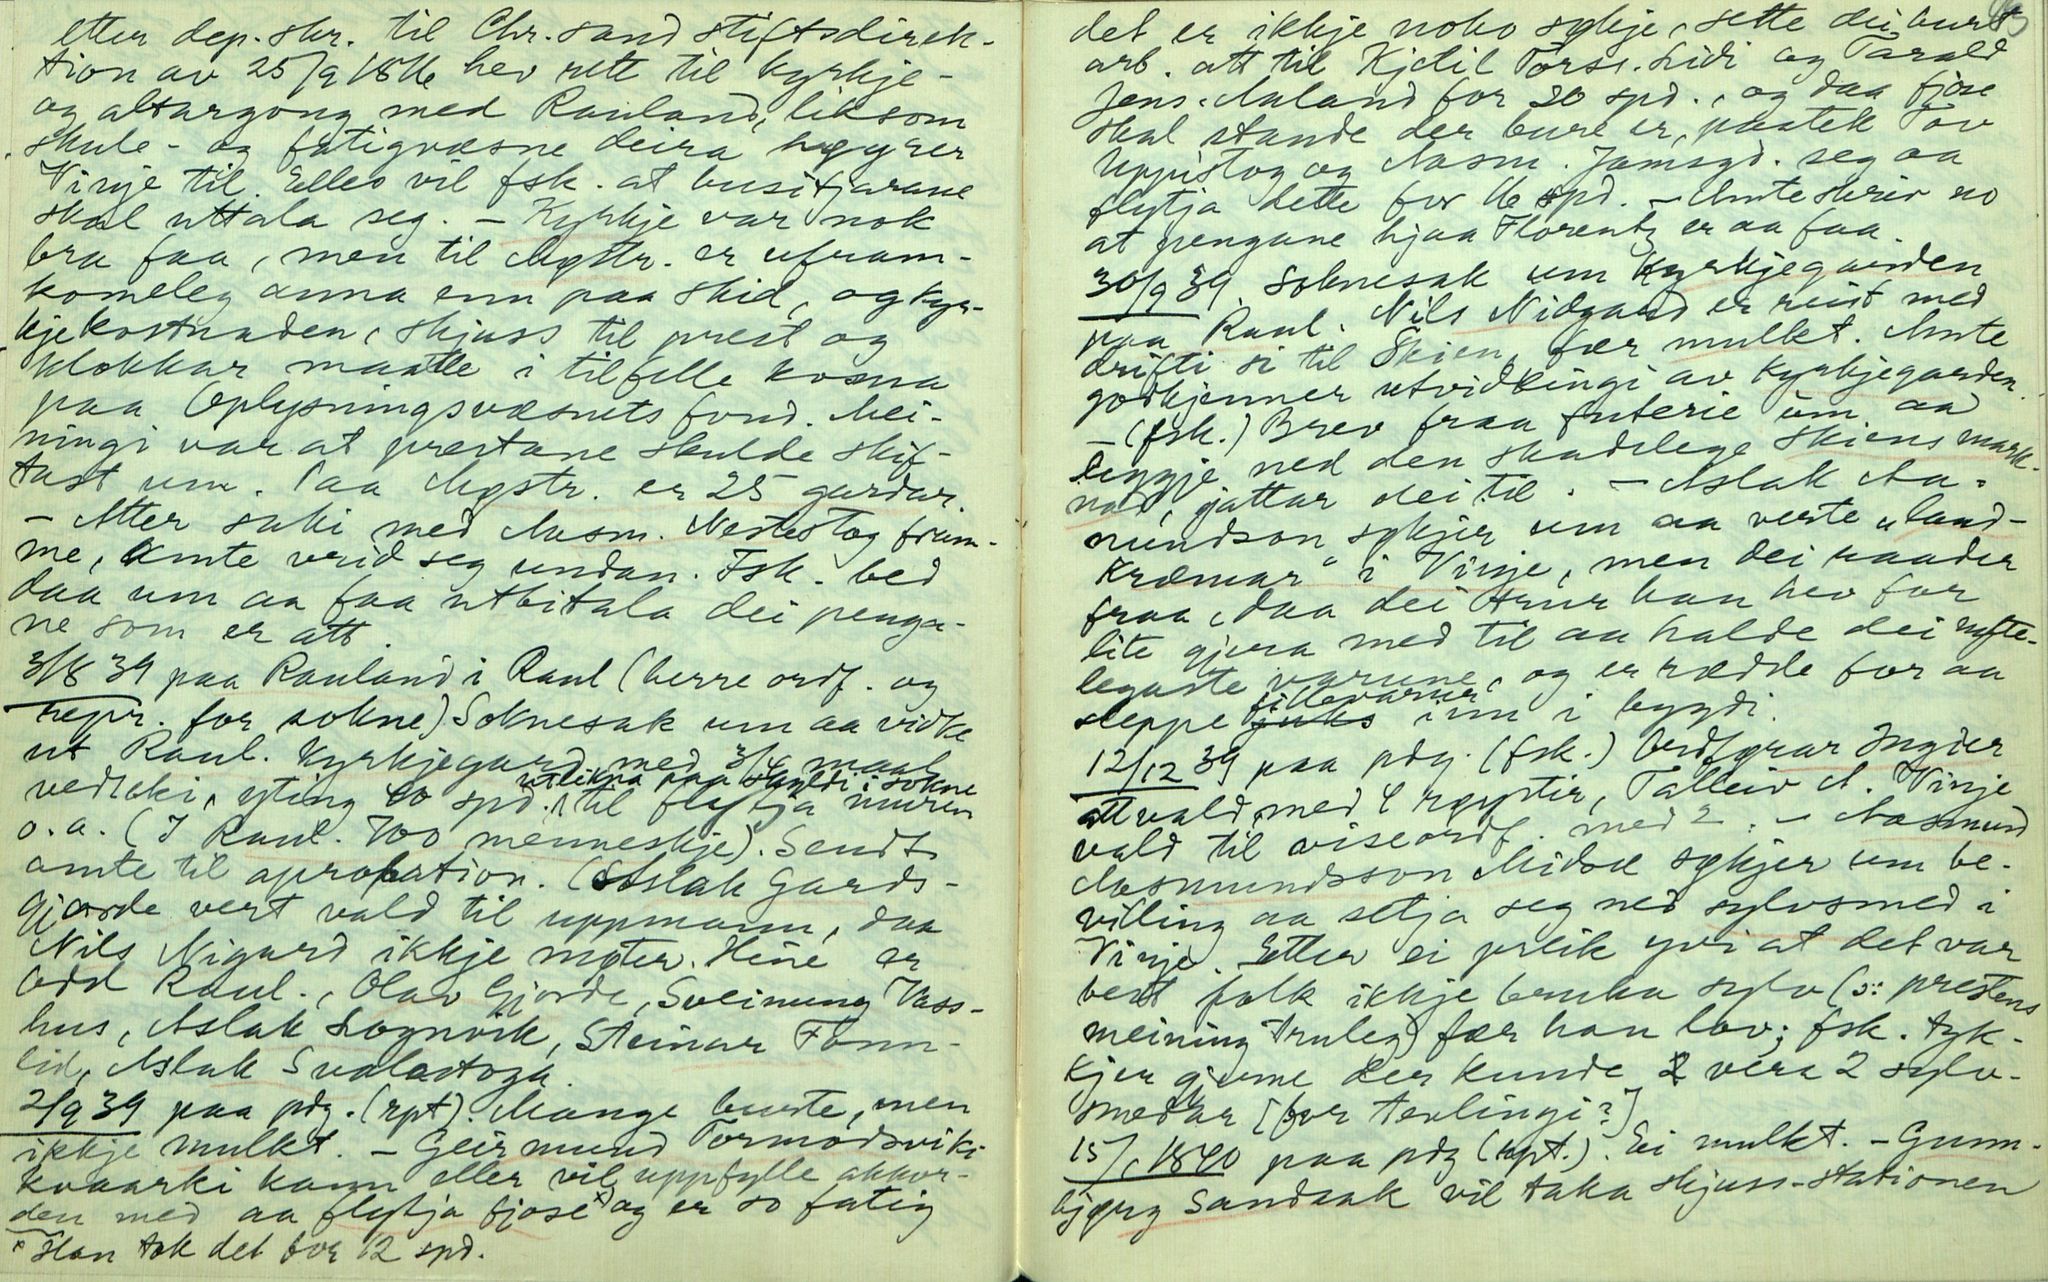 etter dep. skr. til Chr.sand stiftsdirek-
tion av 25/9 1816 hev rett til kyrkje-
og altargong med Rauland, liksom
skule- og fatigvæsne deira høyrer
Vinje til. Elles vil fsk. at busitjarane
skal uttala seg. – Kyrkje var nok
bra faa, men til Møstr. er ufram-
komeleg anna enn paa skid, og kyr-
kjekostnaden, skjuss til prest og
klokkar maatte i tilfelle koma
paa Oplysningsvæsnets fond. Mei-
ningi var at prestane skulde skif-
tast um. Paa Møstr. er 25 gardar.
– Atter saki med Aasm. Nestestog fram-
me, Amte vrid seg undan. Fsk. bed
daa um aa faa utbitala dei penga-
ne som er att.
3/8 39 paa Rauland i Raul (berre ordf. og
repr. for sokne) Soknesak um aa vidke
ut Raul. Kyrkjegard med 3/4 maal
utlikna paa skyldi i sokne
vedleki, yting 80 spd. til flytja muren
o.a. (I Raul. 700 menneskje). Sendt
amte til aprobation. (Aslak Gards-
gjorde vert vald til uppmann, daa
Nils Nigard ikkje møter. Hine er
Odd Raul., Olav Gjorde, Sveinung Vass-
hus, Aslak Lognvik, Steinar Fonn-
lid, Aslak Svalastoga.
2/9 39 paa pdg. (rpt). Mange burte, men
ikkje mulkt. – Geirmund Tormodsviki
kvaarki kann eller vil uppfylle akkor-
den med aa flytja fjose x) og er so fatig
x Han tok det for 12 spd.
det er ikkje noko søkje, sette dei burt
arb. att til Kjetil Torss. Lidi og Tarald
Jens. Aaland for 20 spd., og daa fjose
skal stande der bure er, paatek Tov
Uppistog og Aasm. Jamsgd. seg aa
flytja dette for 16 spd. – Amte skriv no
at pengane hjaa Florentz er aa faa.
30/9 39 Soknesak um kyrkjegarden
paa Raul. Nils Nidgard er reist med
drifti si til Skien, fær mulkt. Amte
godkjenner utvidkingi av kyrkjegarden.
– (fsk.) Brev fraa futerie um aa
leggje ned den skadelege Skiens mark-
nad, jattar dei til. – Aslak Aa-
mundson søkjer um aa verte "land-
kræmar" i Vinje, men dei raader
fraa, daa dei trur han hev for
lite gjera med til aa halde dei nytte-
legaste varune, og er rædde for aa
fillevarur
sleppe juks inn i bygdi.
12/12 39 paa pdg. (fsk.) Ordførar Ingier
attvald med 4 røystir, Talleiv A. Vinje
vald til viseordf. med 2. – Aasmund
Aasmundsson Midbø søkjer um be-
villing aa setja seg ned sylvsmed i
Vinje. Etter ei prik yvi at det var
best folk ikkje bruka sylv (ɔ: prestens
meining truleg) fær han lov; fsk. tyk-
kjer gjerne der kunde vera 2 sylv-
smedar [for tevlingi?]
15/1 1840 paa pdg (rpt.). Ei mulkt. – Gunn-
bjørg Sandaak vil taka skjuss-stationen